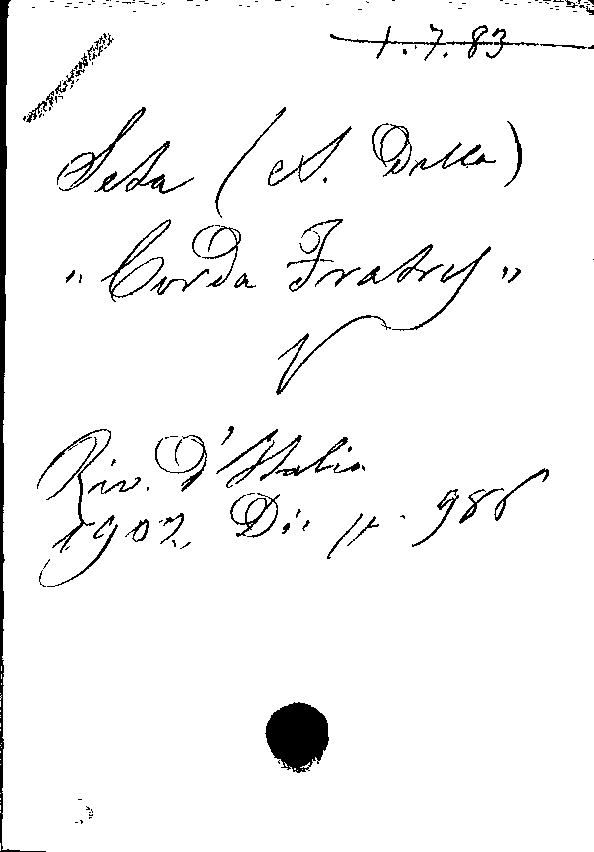 1.7.83
Seta (A. Della)
"Corda Fratres"
Riv. D'Italia
1902, Dic p. 986